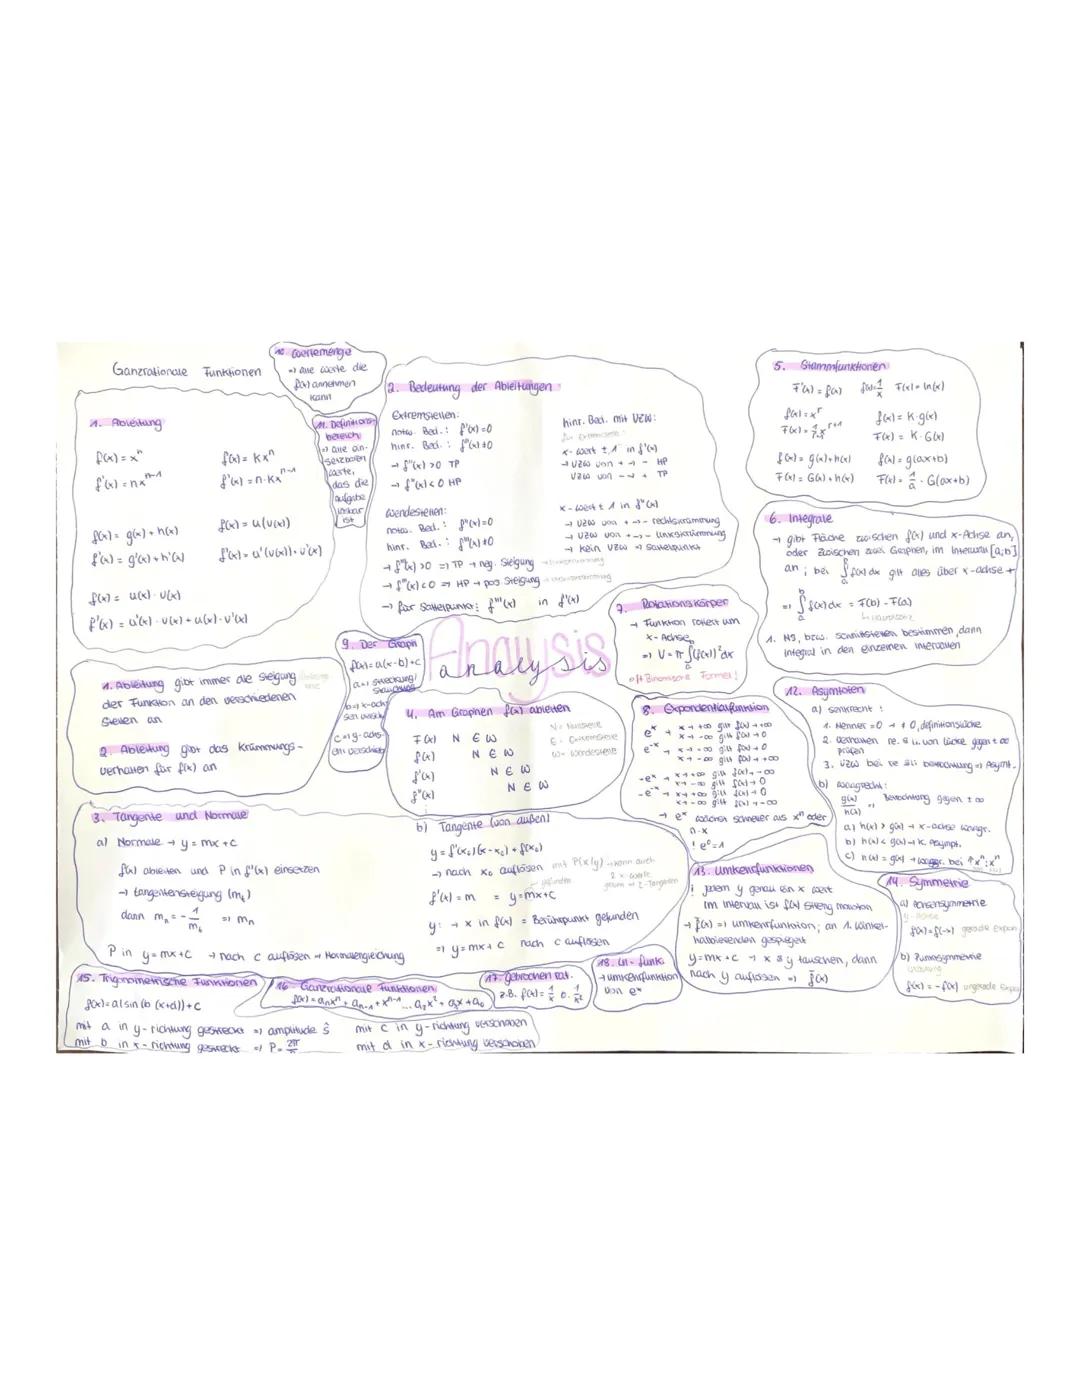 Ganzrationale Funktionen
10. Wertemenge
=> alle Werte die
f(x) annehmen
kann
1. Ableitung
f(x) = xⁿ
f'(x) = nxⁿ⁻¹
f(x) = Kxⁿ
f'(x) = n·Kxⁿ⁻¹
f(x) = g(x) + h(x)
f'(x) = g'(x) + h'(x)
f(x) = u(v(x))
f'(x) = u'(v(x)) · v'(x)
f(x) = u(x) · v(x)
f'(x) = u'(x) · v(x) + u(x) · v'(x)
11. Definitions-
bereich
=> alle ein-
setzbaren
Werte,
das die
Aufgabe
lösbar
ist
2. Bedeutung der Ableitungen
Extremstellen:
notw. Bed.: f'(x) = 0
hinr. Bed.: f''(x) ≠ 0
→ f''(x) > 0 TP
→ f''(x) < 0 HP
Wendestellen:
notw. Bed.: f''(x) = 0
hinr. Bed.: f'''(x) ≠ 0
→ f'''(x) > 0 => TP → neg. Steigung
→ f'''(x) < 0 => HP → pos. Steigung
→ für Sattelpunkt: f'''(x) in f'(x)
hinr. Bed. mit VZW:
für Extremstelle:
x-Wert ± 1 in f'(x)
→ VZW von + → - HP
VZW von - → + TP
x-Wert ± 1 in f''(x)
→ VZW von + → - rechtskrümmung
→ VZW von + → - linkskrümmung
→ kein VZW => Sattelpunkt
5. Stammfunktionen
F'(x) = f(x) f(x) = 1/x F(x) = ln(x)
f(x) = xʳ
F(x) = 1/r+1 xʳ⁺¹
f(x) = K·g(x)
F(x) = K·G(x)
f(x) = g(x) + h(x)
F(x) = G(x) + h(x)
f(x) = g(ax+b)
F(x) = 1/a · G(ax+b)
6. Integrale
→ gibt Fläche zwischen f(x) und x-Achse an,
oder zwischen zwei Graphen, im Intervall [a;b]
an; bei ∫ₐᵇ f(x) dx gilt alles über x-achse +
=> ∫ₐᵇ f(x) dx = F(b) - F(a)
↳ Hauptsatz
1. NS, bzw. Schnittstellen bestimmen, dann
Integral in den einzelnen Intervallen
7. Rotationskörper
→ Funktion rotiert um
x-Achse
=> V = π ∫ₐᵇ (f(x))² dx
oft Binomische Formel!
1. Ableitung gibt immer die Steigung
der Funktion an den verschiedenen
Stellen an
2. Ableitung gibt das Krümmungs-
verhalten für f(x) an
9. Der Graph
f(x) = a(x-b)+c
a => Streckung/
Stauchung
b => x-ach-
sen versch
c => y-achs-
en verschieb
Anaysis
analysis
4. Am Graphen f(x) ableiten
F(x) N E W
f(x) N E W
f'(x) N E W
f''(x) N E W
N = Nullstelle
E = Extremstelle
W = Wendestelle
8. Exponentialfunktion
eˣ → x→+∞ gilt f(x)→+∞
x→-∞ gilt f(x)→0
e⁻ˣ → x→+∞ gilt f(x)→0
x→-∞ gilt f(x)→+∞
-eˣ → x→+∞ gilt f(x)→-∞
x→-∞ gilt f(x)→0
-e⁻ˣ → x→+∞ gilt f(x)→0
x→-∞ gilt f(x)→-∞
→ eˣ wachsen schneller als xⁿ oder
n·x
! e⁰ = 1
12. Asymptoten
a) senkrecht:
1. Nenner = 0 → ≠ 0, definitionslücke
2. Verhalten re. & li. von Lücke gegen ± ∞
prüfen
3. VZW bei re & li betrachtung => Asympt.
b) waagrecht:
g(x)/h(x) Betrachtung gegen ± ∞
a) h(x) > g(x) → x-achse waagr.
b) h(x) < g(x) → k. Asympt.
c) h(x) = g(x) → waagr. bei ↑xⁿ : xⁿ
3. Tangente und Normale
a) Normale → y = mx + c
f(x) ableiten und P in f'(x) einsetzen
→ tangentensteigung (mₜ)
dann mₙ = - 1/mₜ => mₙ
P in y = mx + c → nach c auflösen → Normalengleichung
b) Tangente (von außen)
y = f'(x₀)(x-x₀) + f(x₀)
→ nach x₀ auflösen mit P(x|y) → kann auch
2 x-Werte
geben => 2 Tangenten
f'(x) = m = y = mx + c
y: → x in f(x) = Berührpunkt gefunden
=> y = mx + c nach c auflösen
13. Umkehrfunktionen
! jedem y genau ein x Wert
im Intervall ist f(x) streng monoton
→ f̄(x) => umkehrfunktion; an 1. Winkel-
halbierenden gespiegelt
y = mx + c → x & y tauschen, dann
nach y auflösen => f̄(x)
14. Symmetrie
a) Achsensymmetrie
y-Achse
f(x) = f(-x) gerade Expon
b) Punktsymmetrie
Ursprung
f(x) = -f(x) ungerade Expo
15. Trigonometrische Funktionen
f(x) = a(sin(b(x+d)) + c
mit a in y-richtung gestreckt => amplitude ŝ
mit b in x-richtung gestreckt => P = 2π
mit c in y-richtung verschoben
mit d in x-richtung verschoben
16. Ganzrationale Funktionen
f(x) = aₙxⁿ + aₙ₋₁ + xⁿ⁻¹ ... a₂x² + a₁x + a₀
17. gebrochen rat.
z.B. f(x) = 1/x o. 1/x²
18. ln-funk.
→ umkehrfunktion
von eˣ